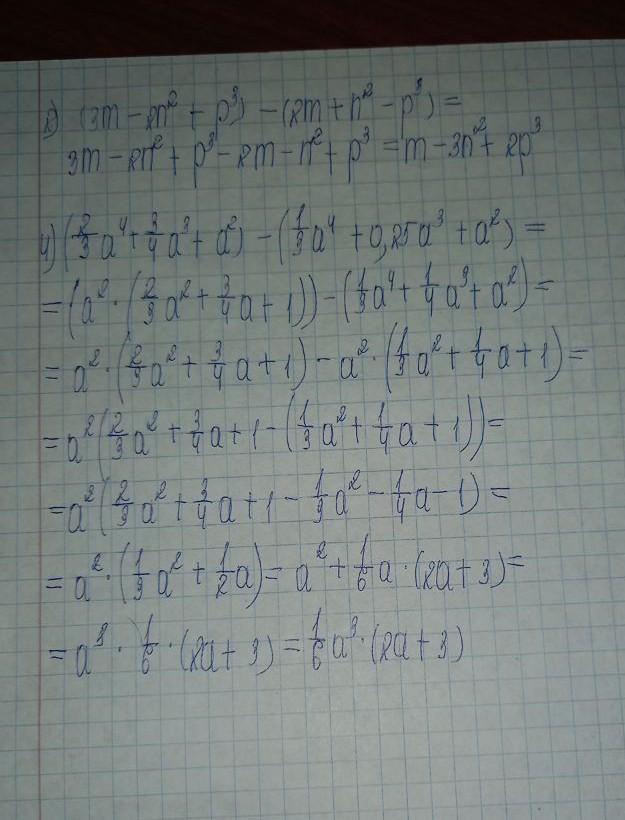 2) (3m - 2n² + p³) - (2m + n² - p³) =
3m - 2n² + p³ - 2m - n² + p³ = m - 3n² + 2p³
4) (2/3 a⁴ + 3/4 a³ + a²) - (1/3 a⁴ + 0,25a³ + a²) =
= (a² · (2/3 a² + 3/4 a + 1)) - (1/3 a⁴ + 1/4 a³ + a²) =
= a² · (2/3 a² + 3/4 a + 1) - a² · (1/3 a² + 1/4 a + 1) =
= a² (2/3 a² + 3/4 a + 1 - (1/3 a² + 1/4 a + 1)) =
= a² (2/3 a² + 3/4 a + 1 - 1/3 a² - 1/4 a - 1) =
= a² · (1/3 a² + 1/2 a) = a² + 1/6 a · (2a + 3) =
= a³ · 1/6 · (2a + 3) = 1/6 a³ · (2a + 3)